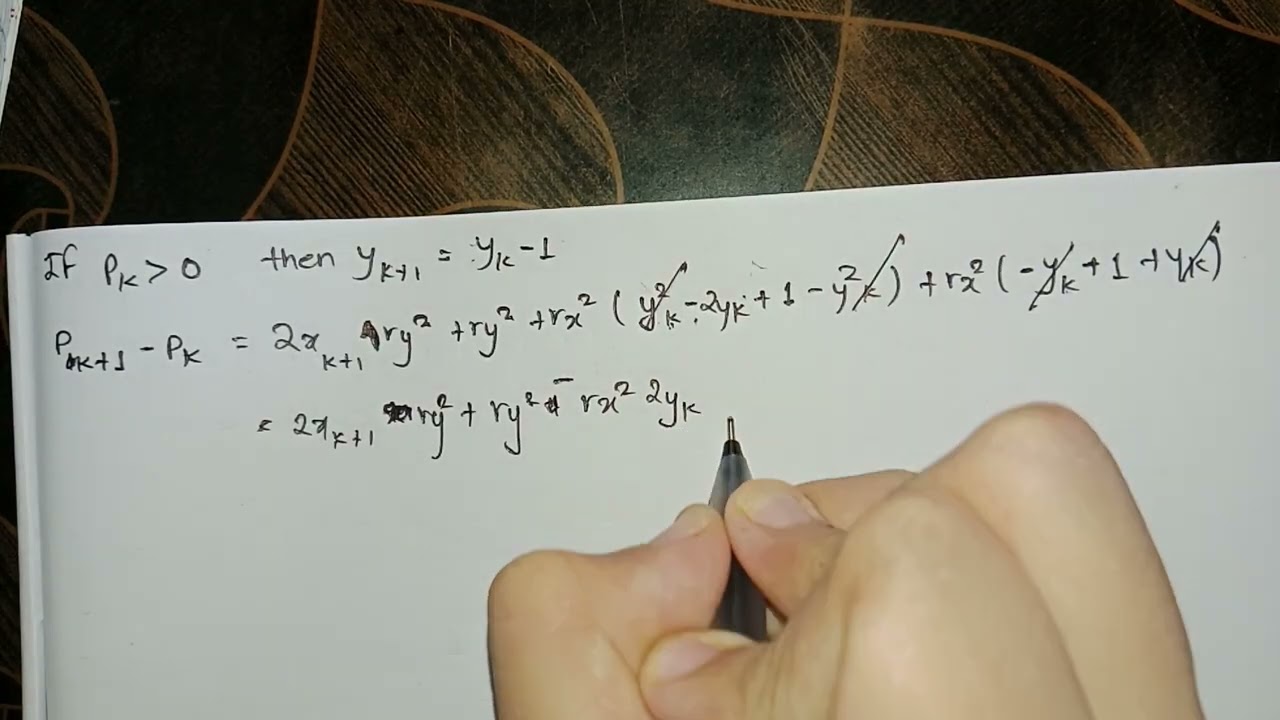 If Pₖ > 0 then yₖ₊₁ = yₖ - 1
Pₖ₊₁ - Pₖ = 2xₖ₊₁ ry² + ry² + rx² ( y²ₖ - 2yₖ + 1 - y²ₖ ) + rx² ( - yₖ + 1 + yₖ )
= 2xₖ₊₁ ry² + ry² - rx² 2yₖ